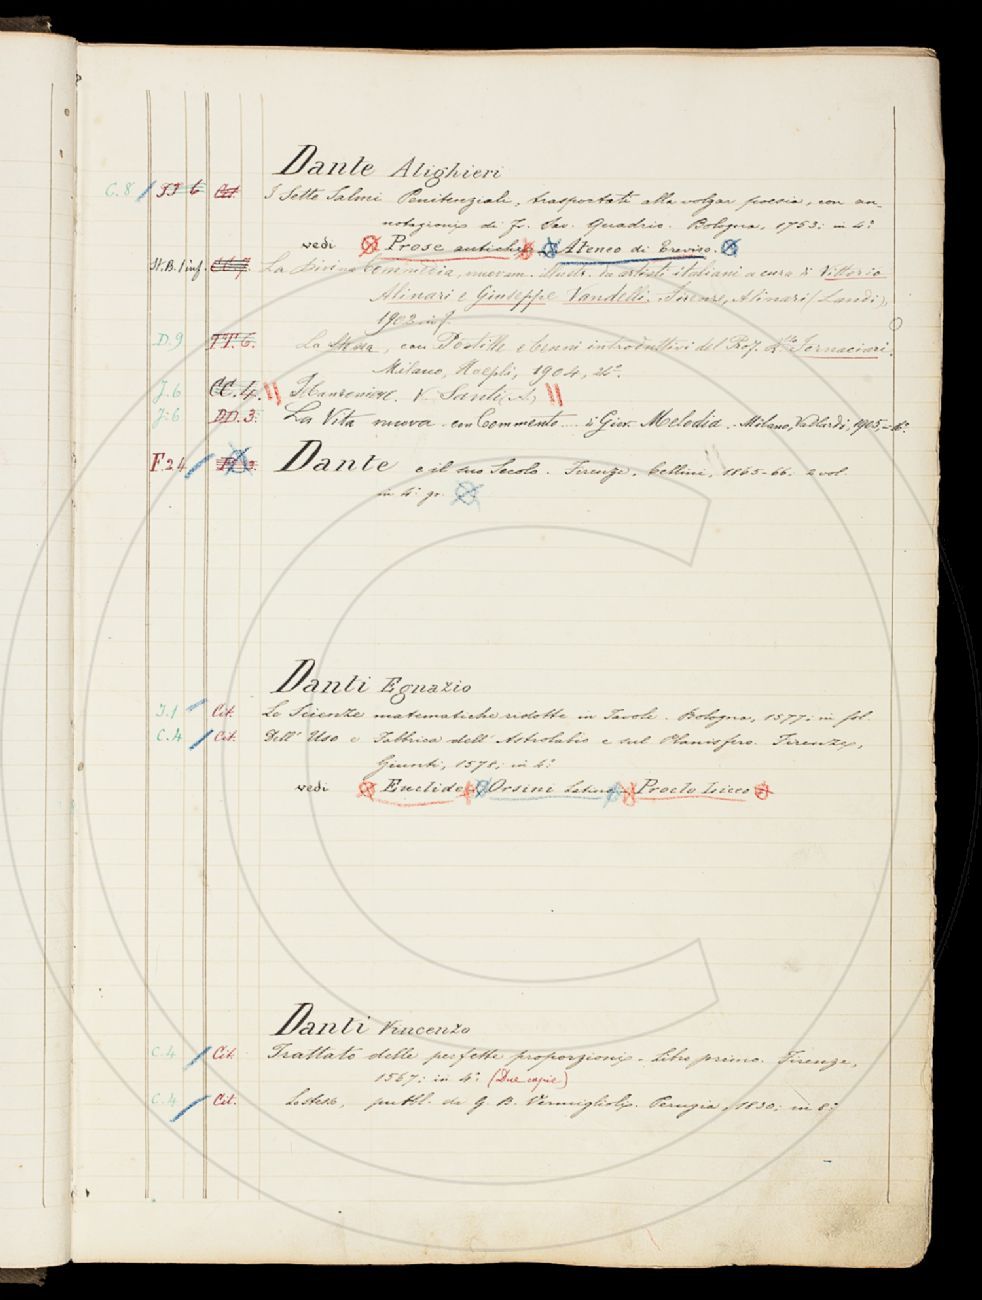 Dante Alighieri
C.8 FF 6 Cit. I Sette Salmi Penitenziali, trasportati alla volgar poesia, con an-
notazioni di F. Sav. Quadrio. Bologna, 1753; in 4°
vedi Prose antiche - Ateneo di Treviso.
St.B. inf. CC.7. La Divina Commedia, nuovam. illustr. da artisti italiani a cura di Vittorio
Alinari e Giuseppe Vandelli. Firenze, Alinari (Landi),
1902. inf.
D.9 FF.6. La Stessa, con Postille e Cenni introduttivi del Prof. Fornaciari.
Milano, Hoepli, 1904, 24°.
J.6 CC.4. Manzoniane. V. Santi, A.
J.6 DD.3. La Vita nuova con Commento di Giov. Melodia. Milano, Vallardi, 1905, 16°.
F24 Dante e il suo Secolo. Firenze, Cellini, 1865-66. 2 vol
in 4° gr.
Danti Egnazio
J.1 Cit. Le Scienze matematiche ridotte in Tavole. Bologna, 1577; in fol.
C.4 Cit. Dell' Uso e Fabbrica dell' Astrolabio e sul Planisfero. Firenze,
Giunti, 1578; in 4°
vedi Euclide - Orsini Latino - Proclo Liceo
Danti Vincenzo
C.4 Cit. Trattato delle perfette proporzioni. Libro primo. Firenze,
1567; in 4° (Due copie)
C.4 Cit. Lo stesso, pubbl. da G. B. Vermiglioli. Perugia, 1830; in 8°